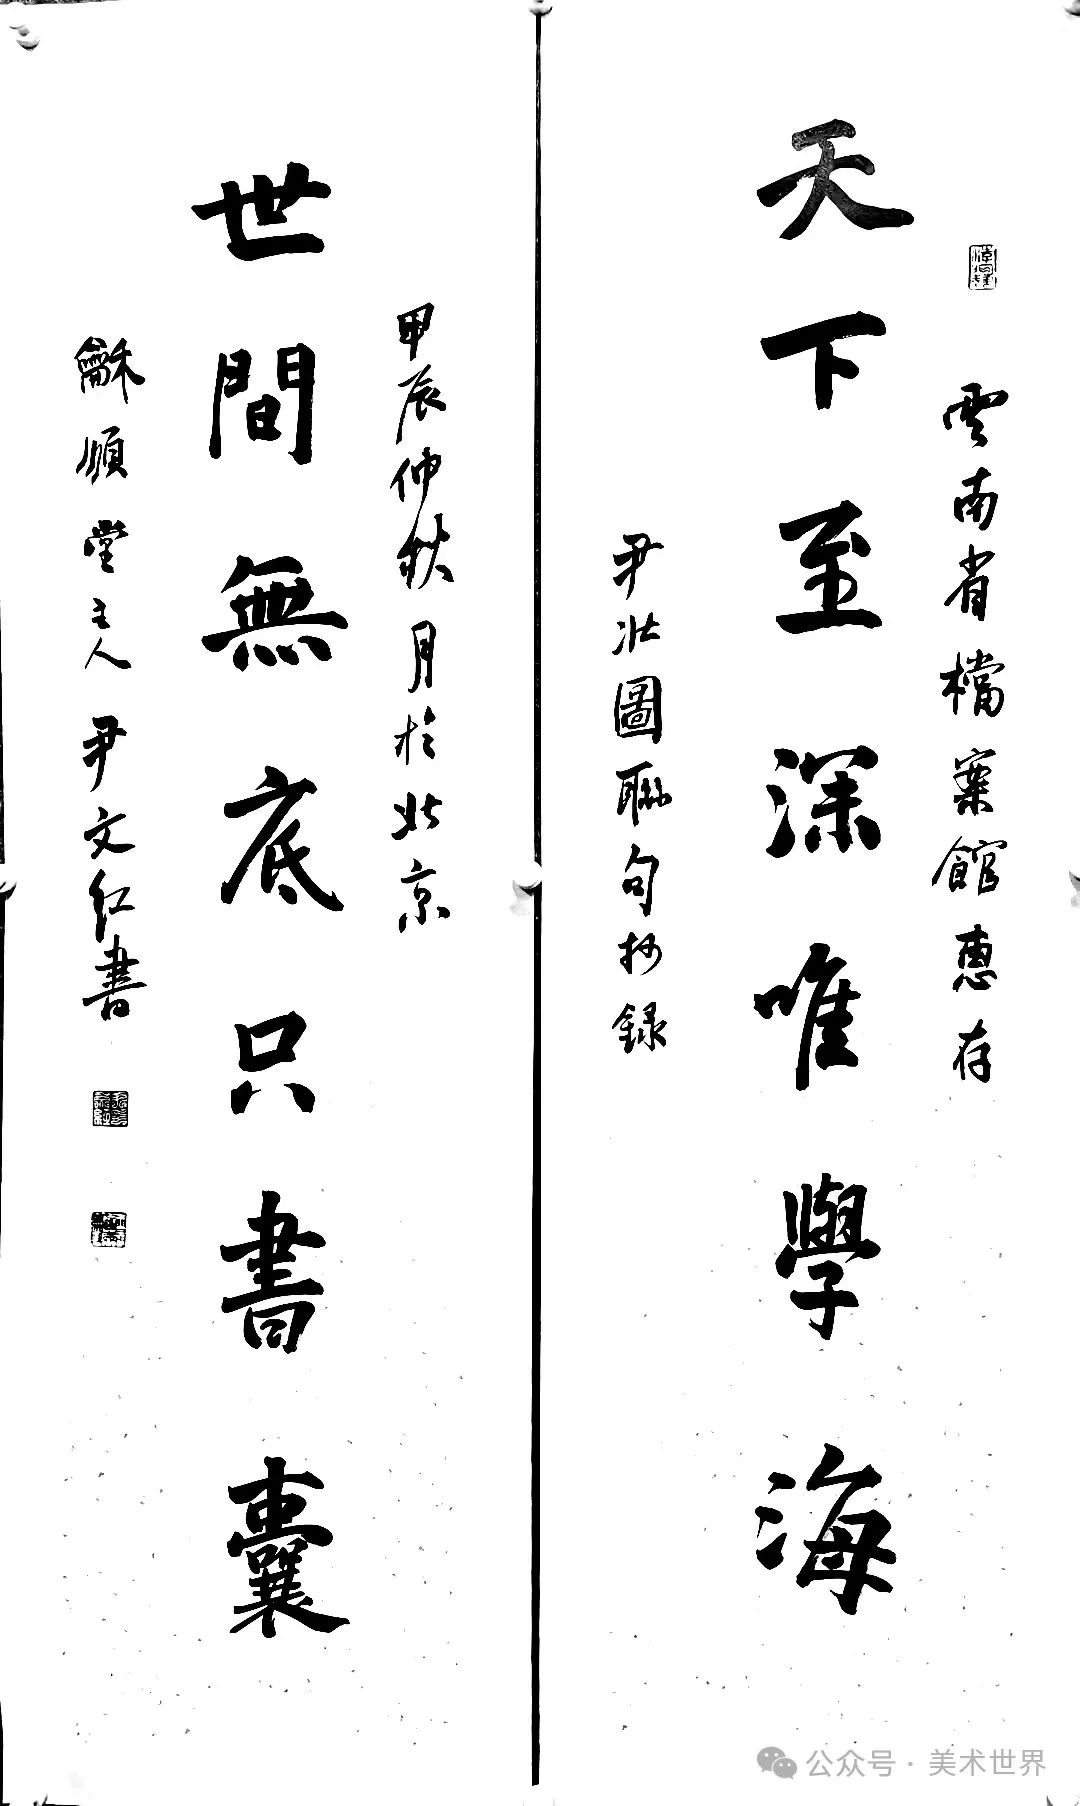 雲南省檔案館惠存
天下至深唯學海
尹壯圖聯句抄錄
甲辰仲秋月於北京
世間無底只書囊
龢順堂主人尹文红書
公众号·美术世界